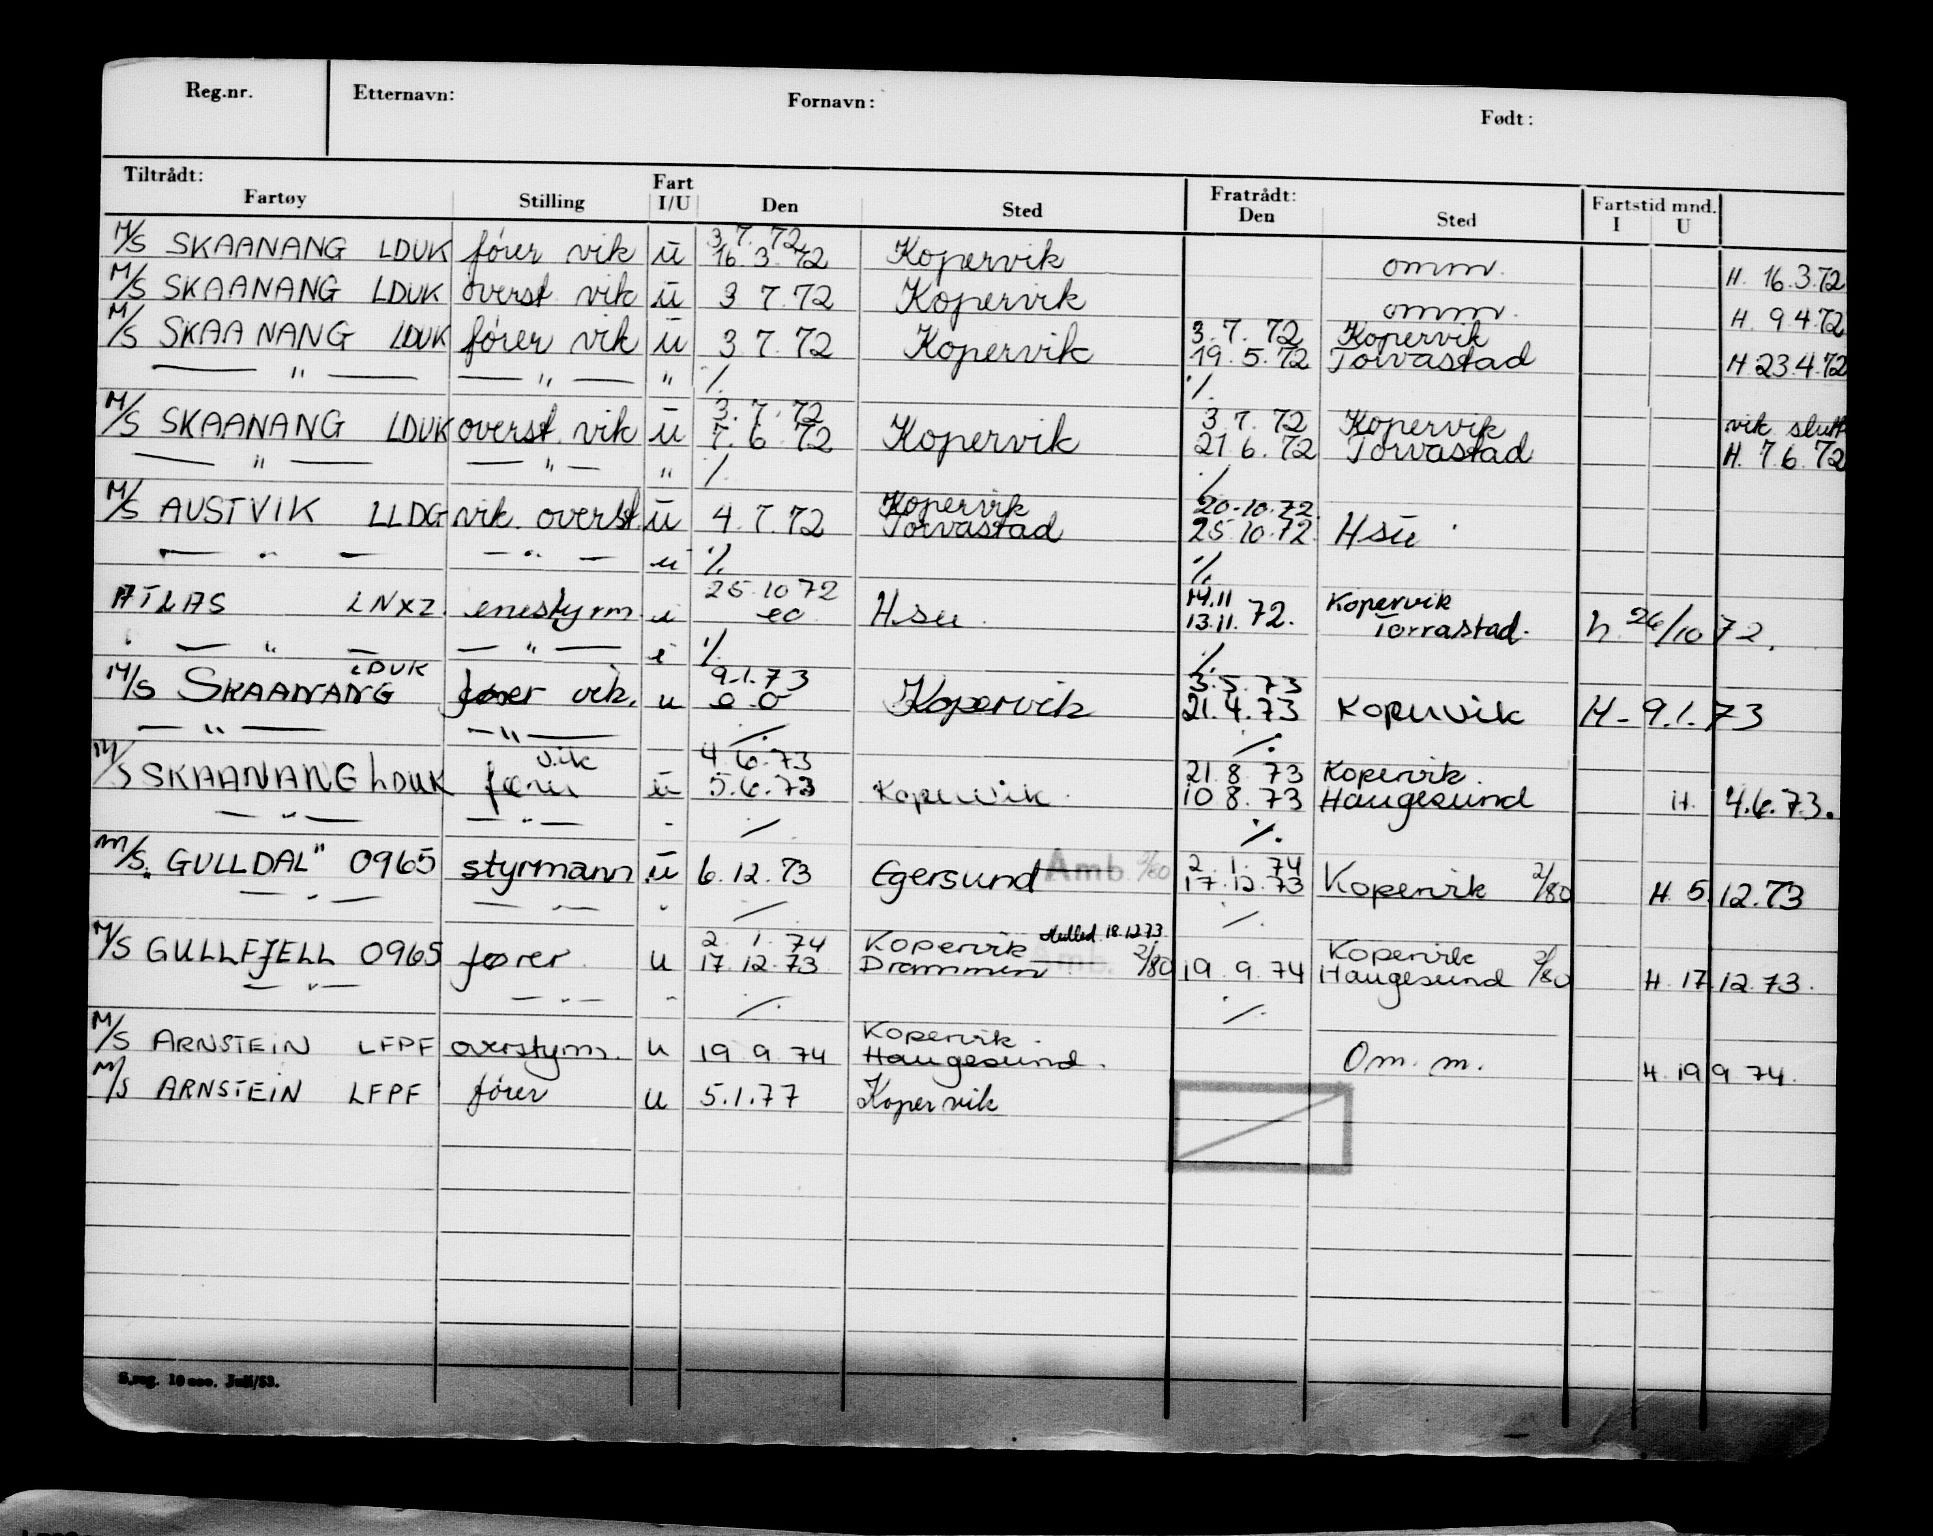 Reg.nr. Etternavn: Fornavn: Født:
Tiltrådt: Fratrådt:
Fartøy Stilling Fart I/U Den Sted Den Sted Fartstid mnd. I U
3.7.72
M/S SKAANANG LDUK fører vik ū 16.3.72 Kopervik omm. H. 16.3.72
M/S SKAANANG LDUK overst. vik ū 3 7.72 Kopervik omm. H. 9.4.72
3.7.72 Kopervik
M/S SKAANANG LDUK fører vik ū 3 7.72 Kopervik 19.5.72 Torvastad H 23.4.72
— " — — " — " ·/. ·/.
3.7.72 3 7.72 Kopervik vik slutt
M/S SKAANANG LDUK overst. vik ū 7.6.72 Kopervik 21 6.72 Torvastad H. 7.6.72
— " — — " — " ·/. ·/.
Kopervik 20.10.72
M/S AUSTVIK LLDG vik. overst. ū 4.7.72 Torvastad 25.10.72 Hsu
— " — — " — u ·/. ·/.
25.10 72 14.11 Kopervik
ATLAS LNXZ. enestyrm. i eo H.su. 13.11.72. Torvastad. h 26/10 72.
— " — — " — i ·/. ·/.
LDUK 9.1.73 3.5.73
M/S SKAANANG fører vik. u e o Kopervik 21.4.73 Kopervik H - 9.1.73
— " — — " — ·/. ·/.
vik 4.6.73 21.8.73 Kopervik.
M/S SKAANANG LDUK fører ū 5.6.73 Kopervik. 10 8.73 Haugesund H. 4.6.73.
— " — — " — - ·/. ·/.
2.1.74
M/S. GULLDAL" 0965 styrmann ū 6.12.73 Egersund Amb. 2/80 17.12.73 Kopervik 2/80 H. 5.12.73
— " — — " — " ·/. ·/.
2.1.74 Kopervik 18.12.73 Kopervik
M/S GULLFJELL 0965 fører u 17.12.73 Drammen Amb. 2/80 19.9.74 Haugesund 2/80 H. 17.12.73.
— " — — " — " ·/. ·/.
Kopervik.
M/S ARNSTEIN LFPF overstyrm. u 19.9.74 Haugesund. Om. m. H. 19 9 74.
M/S ARNSTEIN LFPF fører u 5.1.77 Kopervik
S.reg. 10 000. Juli/53.